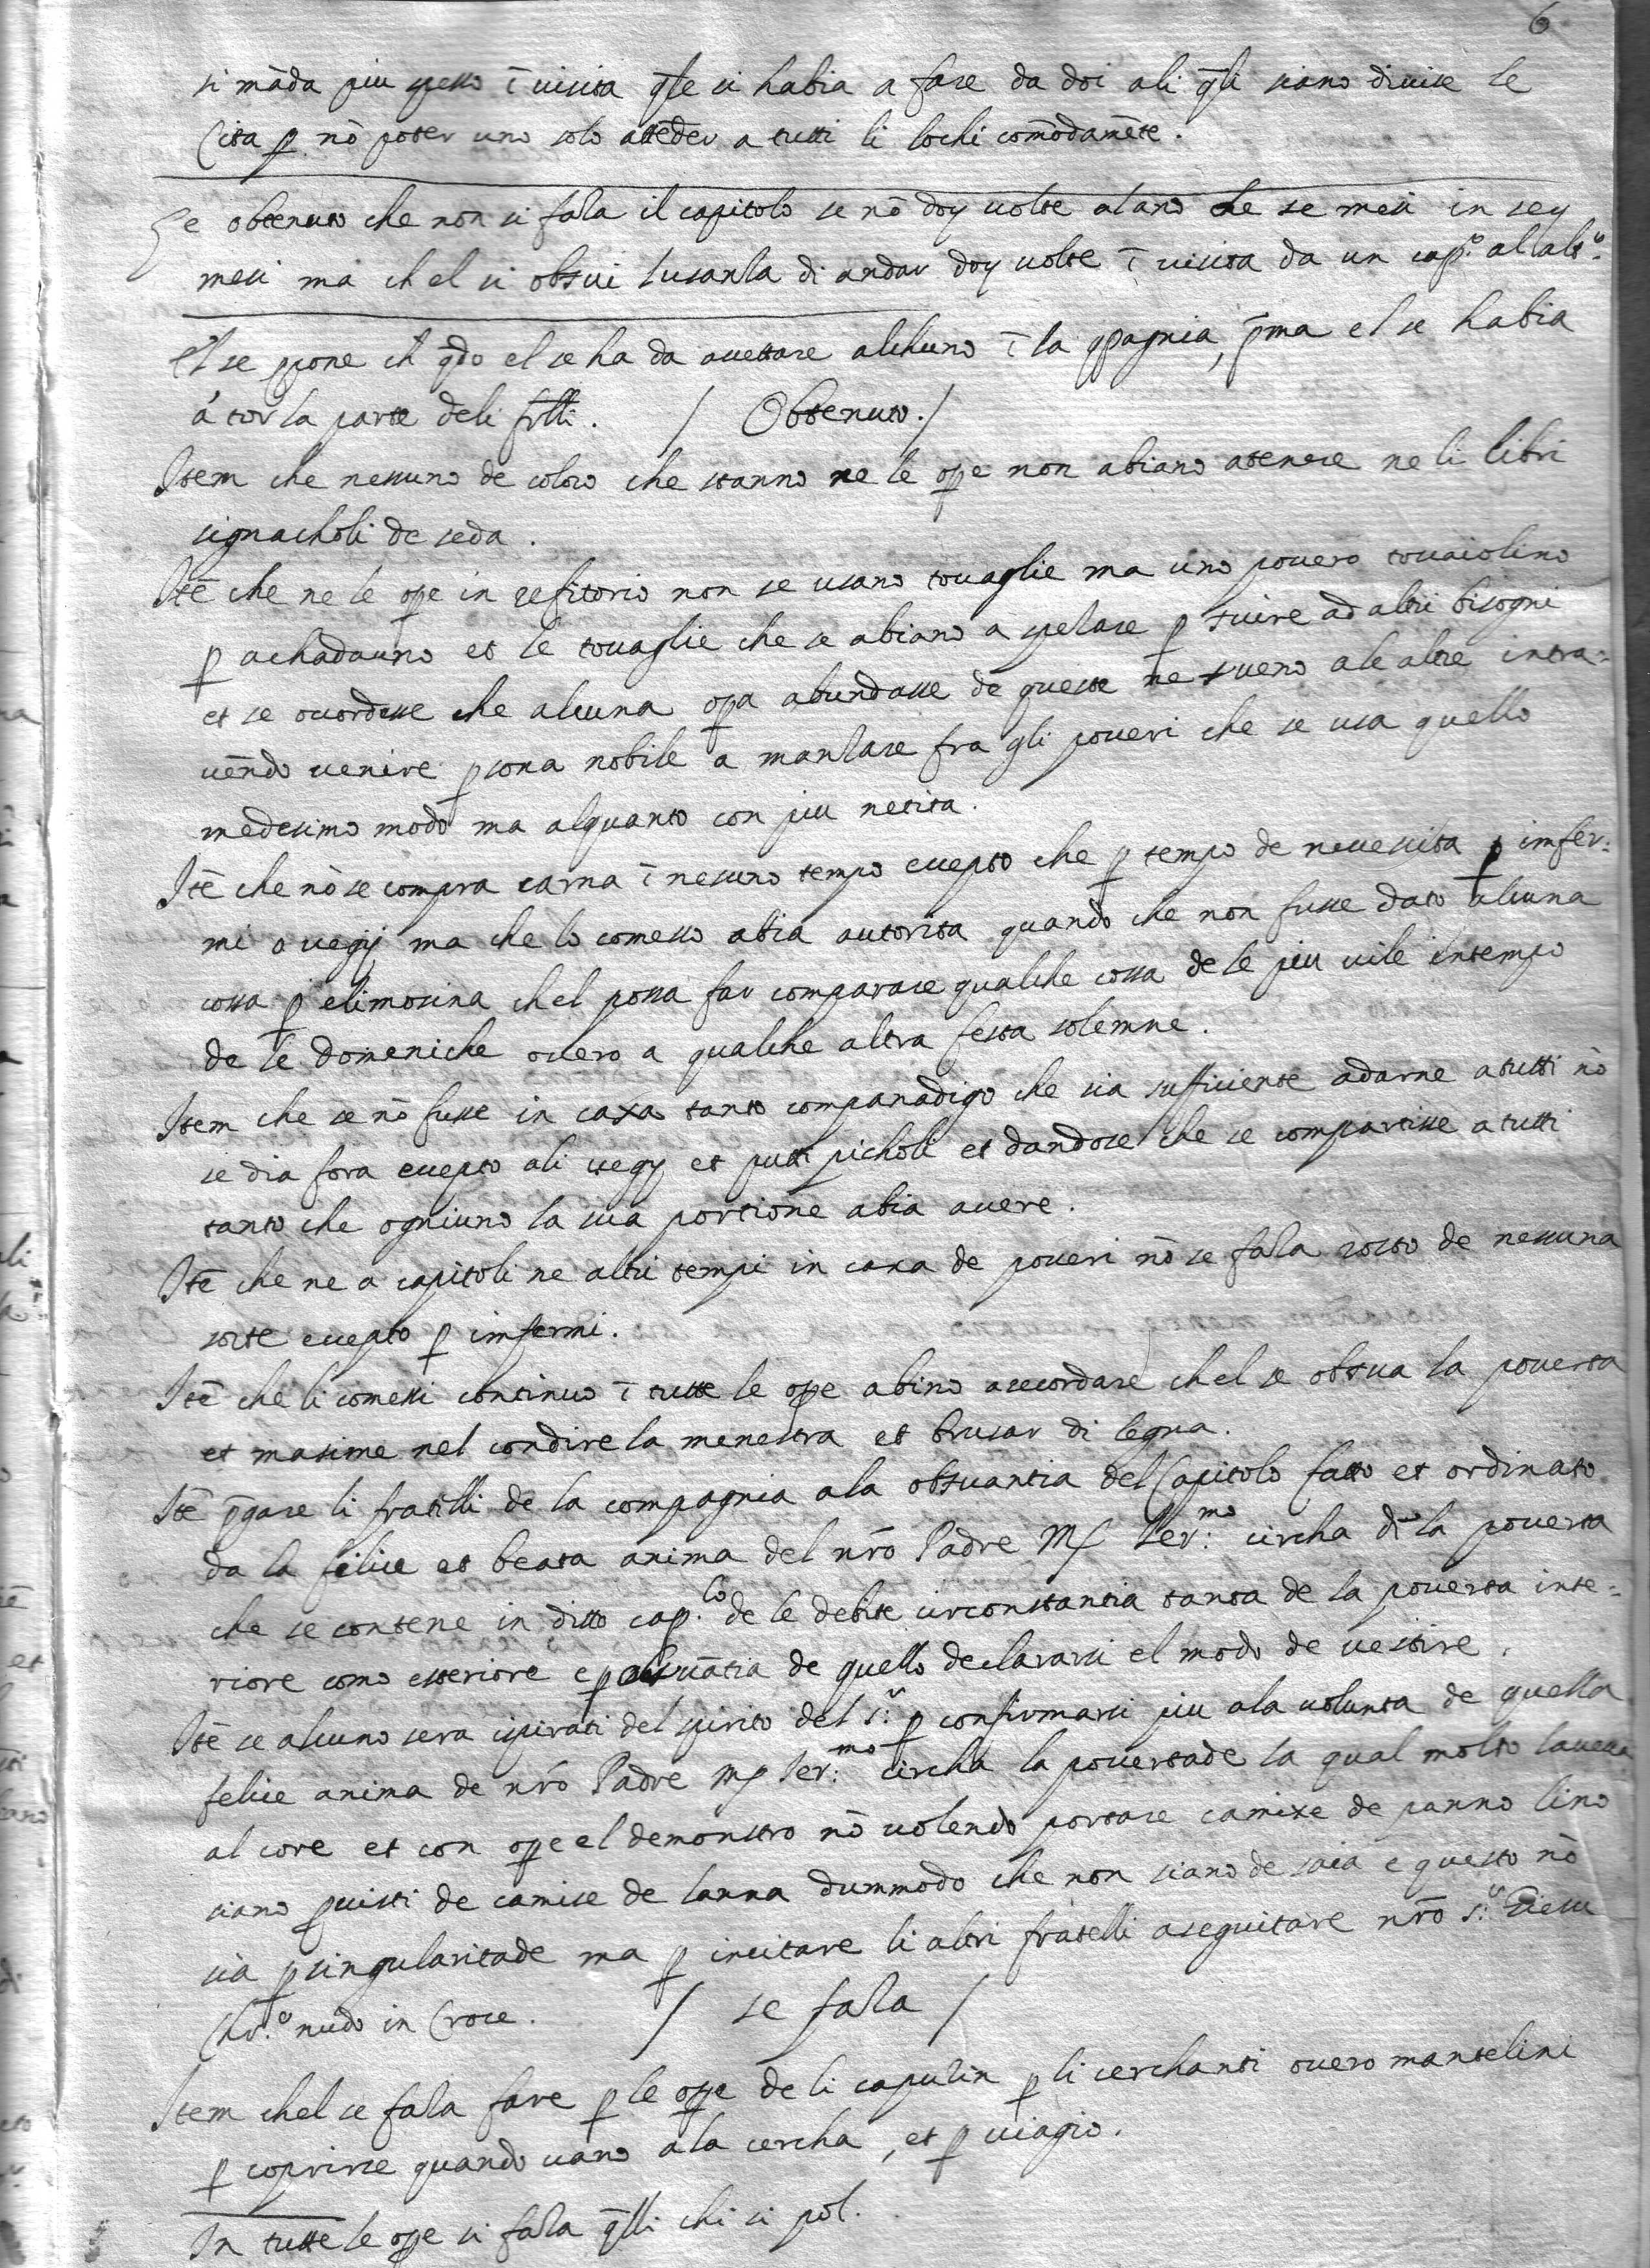 6
si mãda piu spesso ĩ visita q̃le si habia a fare da doi ali q̃li siano divise le
Cita p nõ poter uno solo attẽder a tutti li lochi comõdamẽte.
Se obtenuto che non si faza il capitolo se nõ doy volte alano che se mesi in sey
mesi ma ch el si obsvi lusanza di andar doy volte ĩ visita da un cap.º al altº.
El se ppone ch q̃do el se ha da acettare alchuno ĩ la cõpagnia, p̃ma el se habia
á tor la parte deli frlli. / Obtenuto. /
Item che nessuno de coloro che stanno ne le ope non abiano atenere ne li libri
signacholi de seda.
Itẽ che ne le ope in refitorio non se usano tovaglie ma uno povero tovaiolino
p achadauno et le tovaglie che se abiano a spelare p svire ad altri bisogni
et se acordesse che alcuna opa abundasse de queste ne sveno ale altre intra=
vẽndo venire psona nobile a manzare fra gli poveri che se usa quello
medesimo modo ma alquanto con piu netita.
Itẽ che nõ se compra carna ĩ nesuno tempo excepto che p tempo de necessita p infer=
mi o vegij ma che lo comesso abia autorita quando che non fusse dato alcuna
cossa p elimosina chel possa far comparare qualche cossa de le piu vile intempo
de le Domeniche overo a qualche altra festa solemne.
Item che se nõ fusse in caxa tanto companadigo che sia sufficiente adarne atutti nõ
se dia fora excepto ali vegij et putti picholi et dandose che se compartisse a tutti
tanto che ogniuno la sua portione abia avere.
Itẽ che ne a capitoli ne altri tempi in caxa de poveri nõ se faza rosto de nessuna
sorte excepto p infermi.
Itẽ che li comessi continuo ĩ tutte le ope abino arecordare chel se obsva la poverta
et masime nel condire la menestra et brusar di legna.
Itẽ p̃gare li fratelli de la compagnia ala obsvantia del Capitolo fatto et ordinato
da la felice et beata anima del nrõ Padre Mr Jer:mo circha di la poverta
che se contene in ditto cap.lo de le debite circonstantia tanta de la poverta inte=
riore como esteriore e p obsvãtia de quello declararsi el modo de vestire.
Itẽ se alcuno sera ispirati del spirito del S:r p confirmarsi piu ala volunta de quella
felice anima de nrõ Padre Mr Jer:mo circha la povertade la qual molto lavea
al core et con ope el demonstro nõ volendo portare camixe de panno lino
siano pvisti de camise de lanna dummodo che non siano de saia e questo nõ
sia p singularitade ma p incitare li altri fratelli aseguitare nrõ S:r Giesu
Chr.º nudo in Croce. / se faza /
Item chel se faza fare p le ope de li capuzin p li cerchanti overo mantelini
p coprirse quando vano ala cercha, et p viagio.
In tutte le ope si faza q̃lli chi si pol.